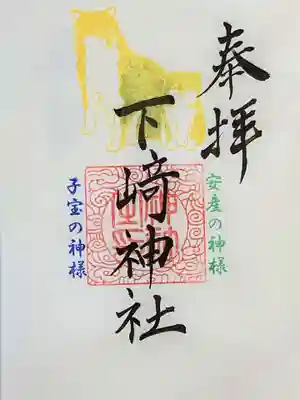 奉拝
安産の神様
下﨑神社
子宝の神様